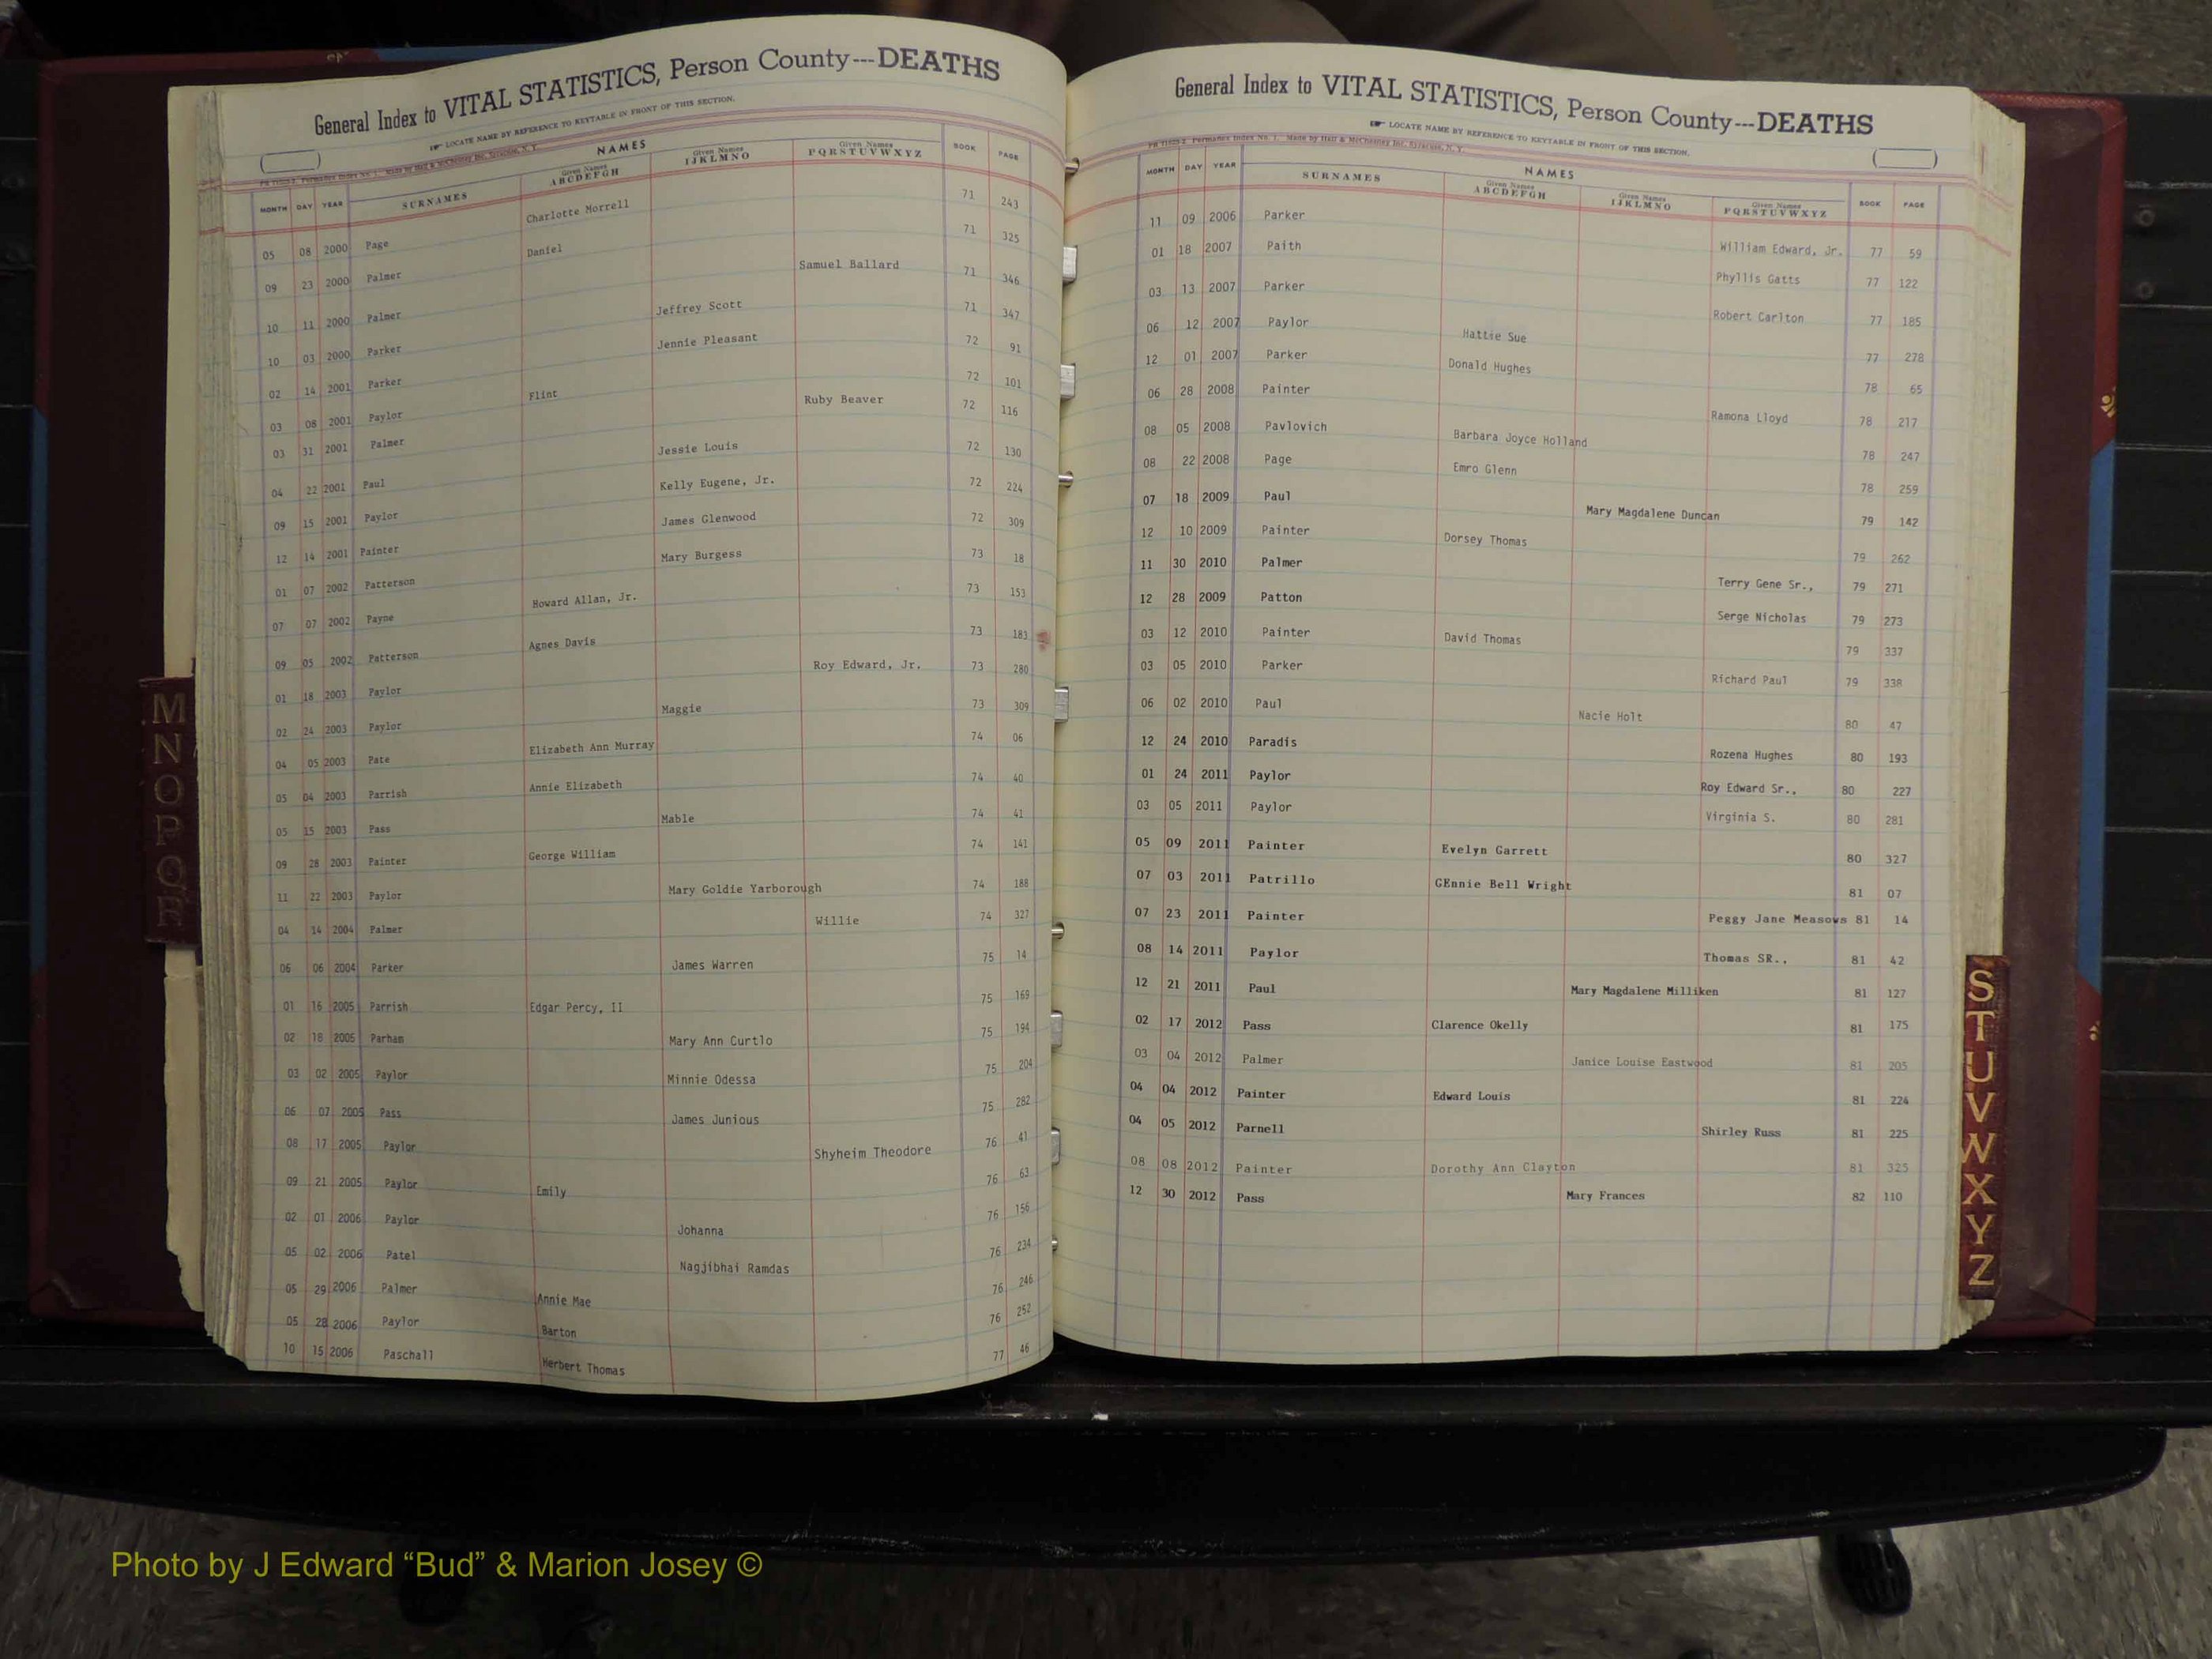 General Index to VITAL STATISTICS, Person County---DEATHS
☞ LOCATE NAME BY REFERENCE TO KEYTABLE IN FRONT OF THIS SECTION.
NAMES
MONTH DAY YEAR SURNAMES Given Names ABCDEFGH Given Names IJKLMNO Given Names PQRSTUVWXYZ BOOK PAGE
05 08 2000 Page Charlotte Morrell 71 243
09 23 2000 Palmer Daniel 71 325
10 11 2000 Palmer Samuel Ballard 71 346
10 03 2000 Parker Jeffrey Scott 71 347
02 14 2001 Parker Jennie Pleasant 72 91
03 08 2001 Paylor Flint 72 101
03 31 2001 Palmer Ruby Beaver 72 116
04 22 2001 Paul Jessie Louis 72 130
09 15 2001 Paylor Kelly Eugene, Jr. 72 224
12 14 2001 Painter James Glenwood 72 309
01 07 2002 Patterson Mary Burgess 73 18
07 07 2002 Payne Howard Allan, Jr. 73 153
09 05 2002 Patterson Agnes Davis 73 183
01 18 2003 Paylor Roy Edward, Jr. 73 280
02 24 2003 Paylor Maggie 73 309
04 05 2003 Pate Elizabeth Ann Murray 74 06
05 04 2003 Parrish Annie Elizabeth 74 40
05 15 2003 Pass Mable 74 41
09 28 2003 Painter George William 74 141
11 22 2003 Paylor Mary Goldie Yarborough 74 188
04 14 2004 Palmer Willie 74 327
06 06 2004 Parker James Warren 75 14
01 16 2005 Parrish Edgar Percy, II 75 169
02 18 2005 Parham Mary Ann Curtlo 75 194
03 02 2005 Paylor Minnie Odessa 75 204
06 07 2005 Pass James Junious 75 282
08 17 2005 Paylor Shyheim Theodore 76 41
09 21 2005 Paylor Emily 76 63
02 01 2006 Paylor Johanna 76 156
05 02 2006 Patel Nagjibhai Ramdas 76 234
05 29 2006 Palmer Annie Mae 76 246
05 28 2006 Paylor Barton 76 252
10 15 2006 Paschall Herbert Thomas 77 46
General Index to VITAL STATISTICS, Person County---DEATHS
☞ LOCATE NAME BY REFERENCE TO KEYTABLE IN FRONT OF THIS SECTION.
NAMES
MONTH DAY YEAR SURNAMES Given Names ABCDEFGH Given Names IJKLMNO Given Names PQRSTUVWXYZ BOOK PAGE
11 09 2006 Parker William Edward, Jr. 77 59
01 18 2007 Paith Phyllis Gatts 77 122
03 13 2007 Parker Robert Carlton 77 185
06 12 2007 Paylor Hattie Sue 77 278
12 01 2007 Parker Donald Hughes 78 65
06 28 2008 Painter Ramona Lloyd 78 217
08 05 2008 Pavlovich Barbara Joyce Holland 78 247
08 22 2008 Page Emro Glenn 78 259
07 18 2009 Paul Mary Magdalene Duncan 79 142
12 10 2009 Painter Dorsey Thomas 79 262
11 30 2010 Palmer Terry Gene Sr., 79 271
12 28 2009 Patton Serge Nicholas 79 273
03 12 2010 Painter David Thomas 79 337
03 05 2010 Parker Richard Paul 79 338
06 02 2010 Paul Nacie Holt 80 47
12 24 2010 Paradis Rozena Hughes 80 193
01 24 2011 Paylor Roy Edward Sr., 80 227
03 05 2011 Paylor Virginia S. 80 281
05 09 2011 Painter Evelyn Garrett 80 327
07 03 2011 Patrillo GEnnie Bell Wright 81 07
07 23 2011 Painter Peggy Jane Measows 81 14
08 14 2011 Paylor Thomas SR., 81 42
12 21 2011 Paul Mary Magdalene Milliken 81 127
02 17 2012 Pass Clarence Okelly 81 175
03 04 2012 Palmer Janice Louise Eastwood 81 205
04 04 2012 Painter Edward Louis 81 224
04 05 2012 Parnell Shirley Russ 81 225
08 08 2012 Painter Dorothy Ann Clayton 81 325
12 30 2012 Pass Mary Frances 82 110
M
N
O
P
Q
R
S
T
U
V
W
X
Y
Z
Photo by J Edward “Bud” & Marion Josey ©